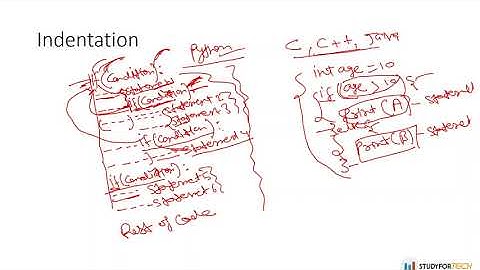 Indentation
Python
if(Condition):
if(Condition)
statement 2
statement 3
if(Condition):
statement 4
if(Condition):
statement 5
statement 6
Rest of Code
C, C++, Java
{ int age = 10
if (age > 10) {
Print (A) - statement
} else {
Print (B) - statement
}
STUDYFORTECH